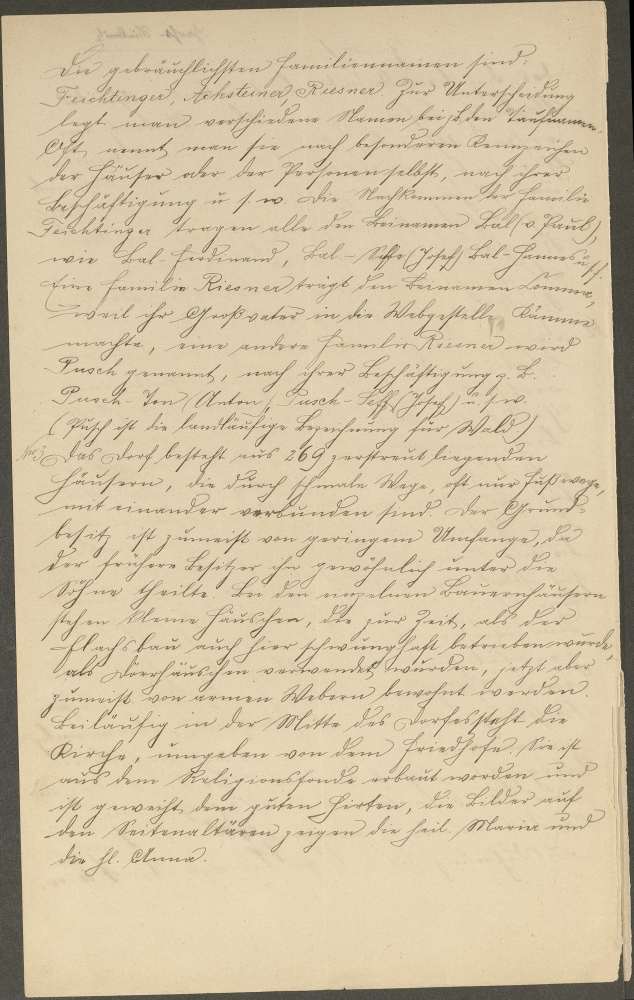 Die gebräuchlichsten Familiennamen sind:
Feichtinger, Achsteiner, Riesner. Zur Unterscheidung
legt man verschiedene Namen bei den Taufnamen.
Oft nennt man sie nach besonderen Kennzeichen
der Häuser oder der Personen selbst, nach ihrer
Beschäftigung u. s. w. Die Nachkommen der Familie
Feichtinger tragen alle den Beinamen Bal (v. Paul),
wie Bal-Ferdinand, Bal-Seffe (Josef) Bal-Hannes u. s. f.
Eine Familie Riesner trägt den Beinamen
weil ihr Großvater in die Webgestelle Kämme
machte, eine andere Familie Riesner wird
Pusch genannt, nach ihrer Beschäftigung z. B.
Pusch-Ton (Anton), Pusch-Seff (Josef) u. s. w.
(Pusch ist die landläufige Bezeichnung für Wald)
No 3. Das Dorf besteht aus 269 zerstreut liegenden
Häusern, die durch schmale Wege, oft nur Fußwege,
mit einander verbunden sind. Der Grund-
besitz ist zumeist von geringem Umfange, da
der frühere Besitzer ihn gewöhnlich unter die
Söhne theilte. Bei den einzelnen Bauernhäusern
stehen kleine Häuschen, die zur Zeit, als der
Flachsbau auch hier schwunghaft betrieben wurde,
als Dörrhäuschen verwendet wurden, jetzt aber
zumeist von armen Webern bewohnt werden.
Beiläufig in der Mitte des Dorfes steht die
Kirche, umgeben von dem Friedhofe. Sie ist
aus dem Religionsfonde erbaut worden und
ist geweiht dem guten Hirten, die Bilder auf
den Seitenaltären zeigen die heil. Maria und
die hl. Anna.